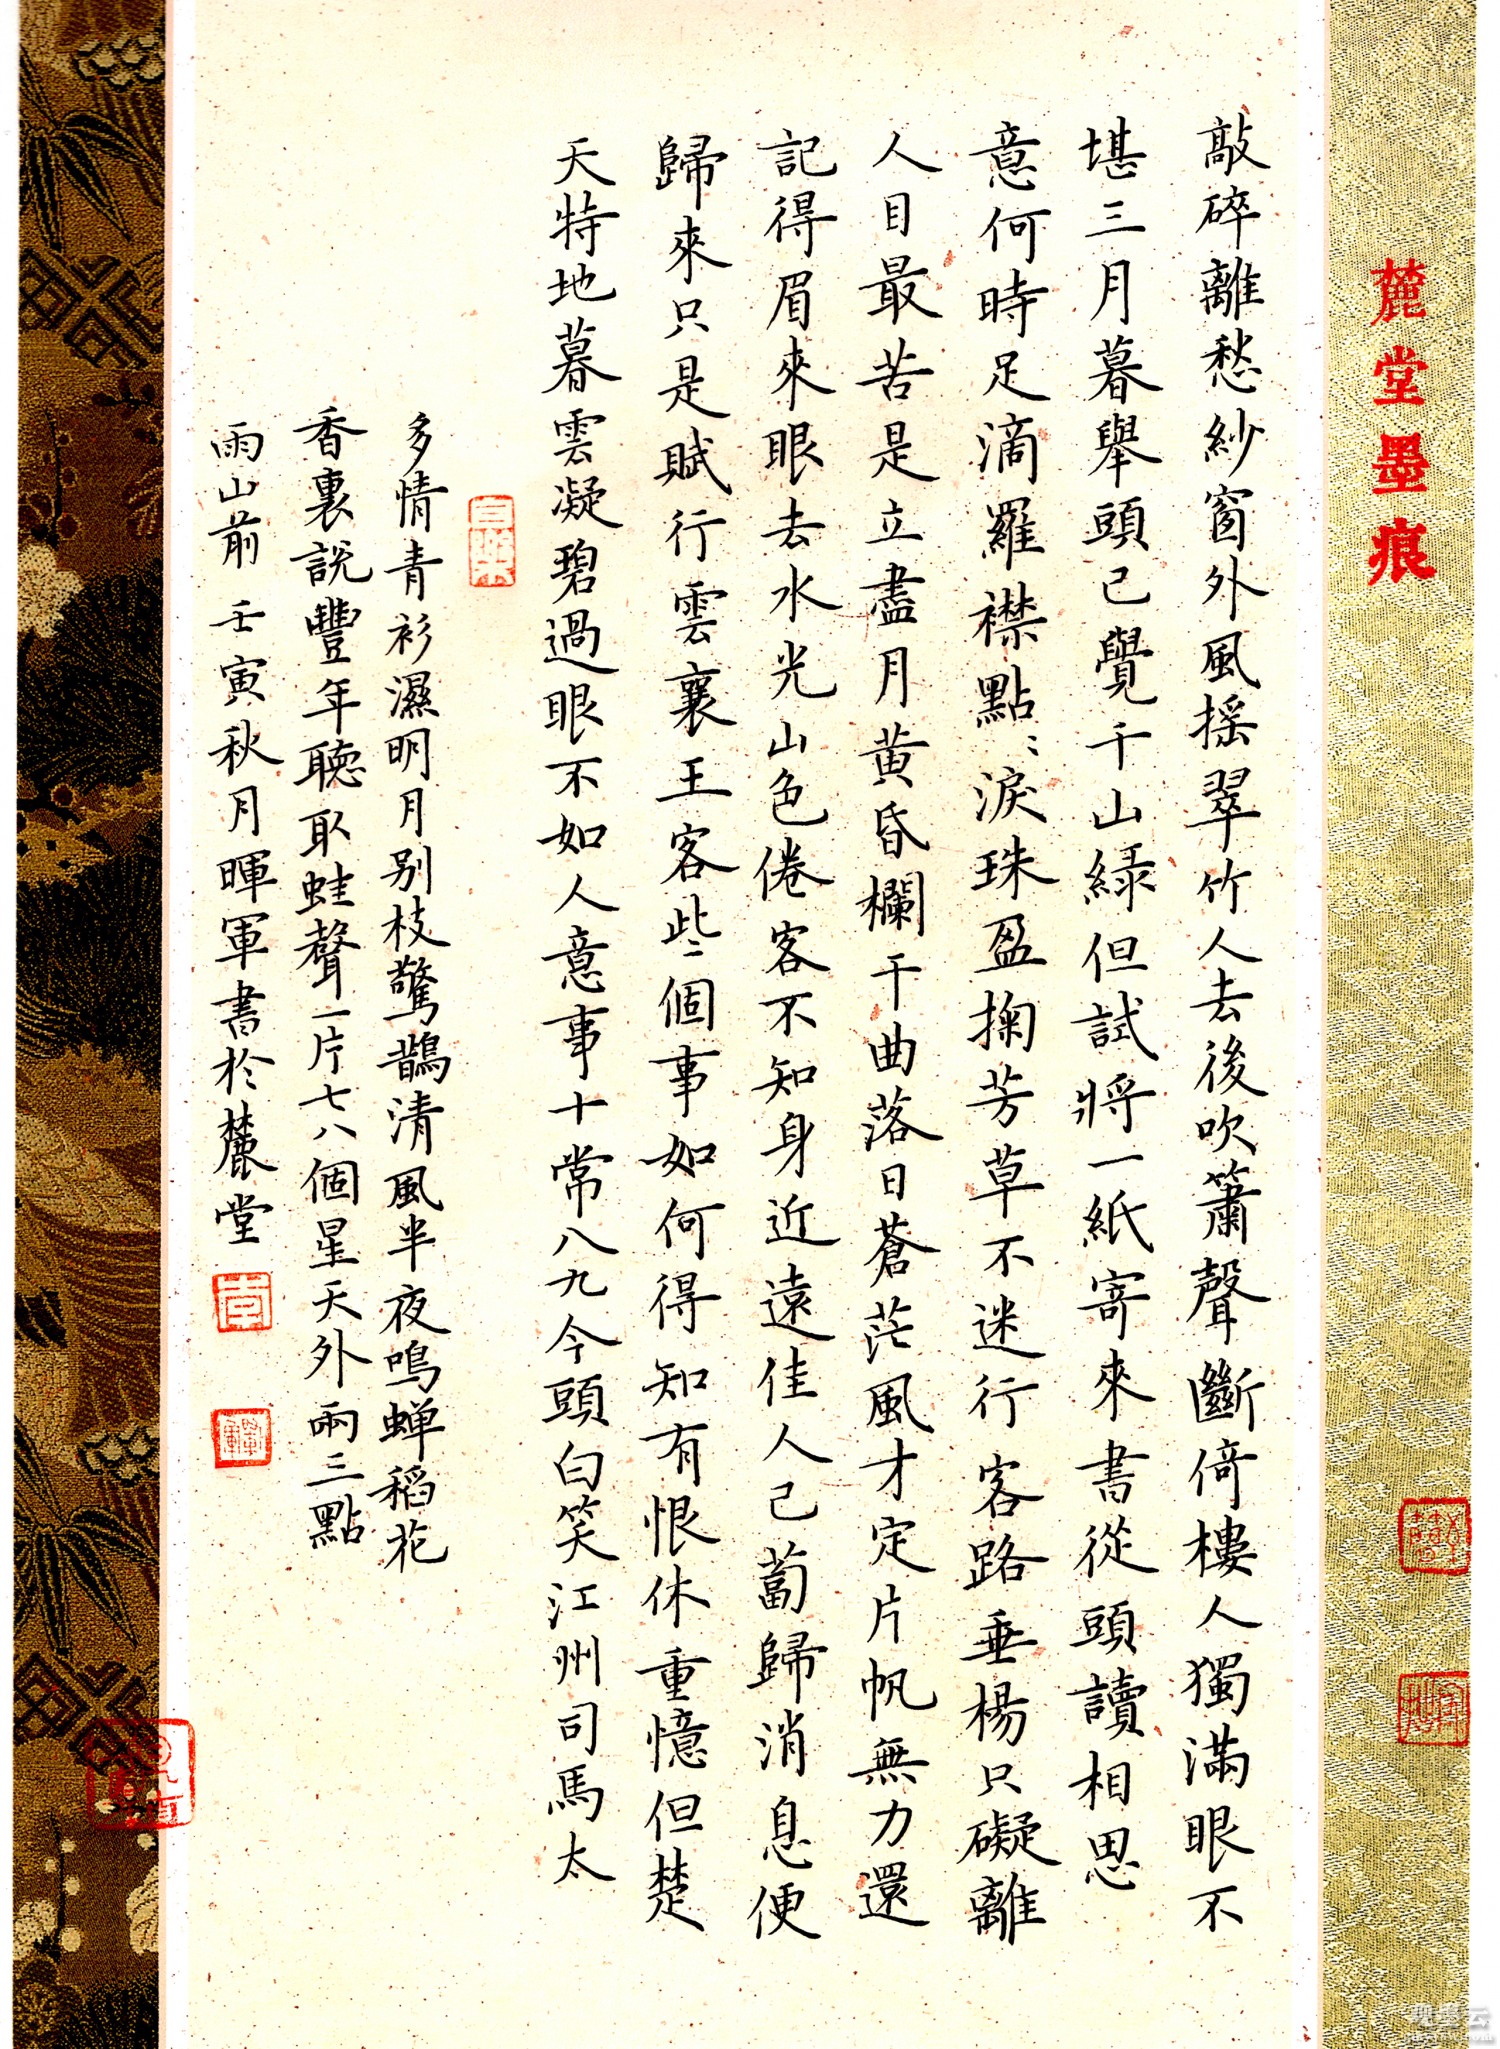 麓堂墨痕
敲碎離愁紗窗外風搖翠竹人去後吹簫聲斷倚樓人獨滿眼不
堪三月暮舉頭已覺千山綠但試將一紙寄來書從頭讀相思
意何時足滴羅襟點〻淚珠盈掬芳草不迷行客路垂楊只礙離
人目最苦是立盡月黃昏欄干曲落日蒼茫風才定片帆無力還
記得眉來眼去水光山色倦客不知身近遠佳人已蔔歸消息便
歸來只是賦行雲襄王客些〻個事如何得知有恨休重憶但楚
天特地暮雲凝碧過眼不如人意事十常八九今頭白笑江州司馬太
多情青衫濕明月別枝驚鵲清風半夜鳴蟬稻花
香裏說豐年聽取蛙聲一片七八個星天外兩三點
雨山前 壬寅秋月暉軍書於麓堂